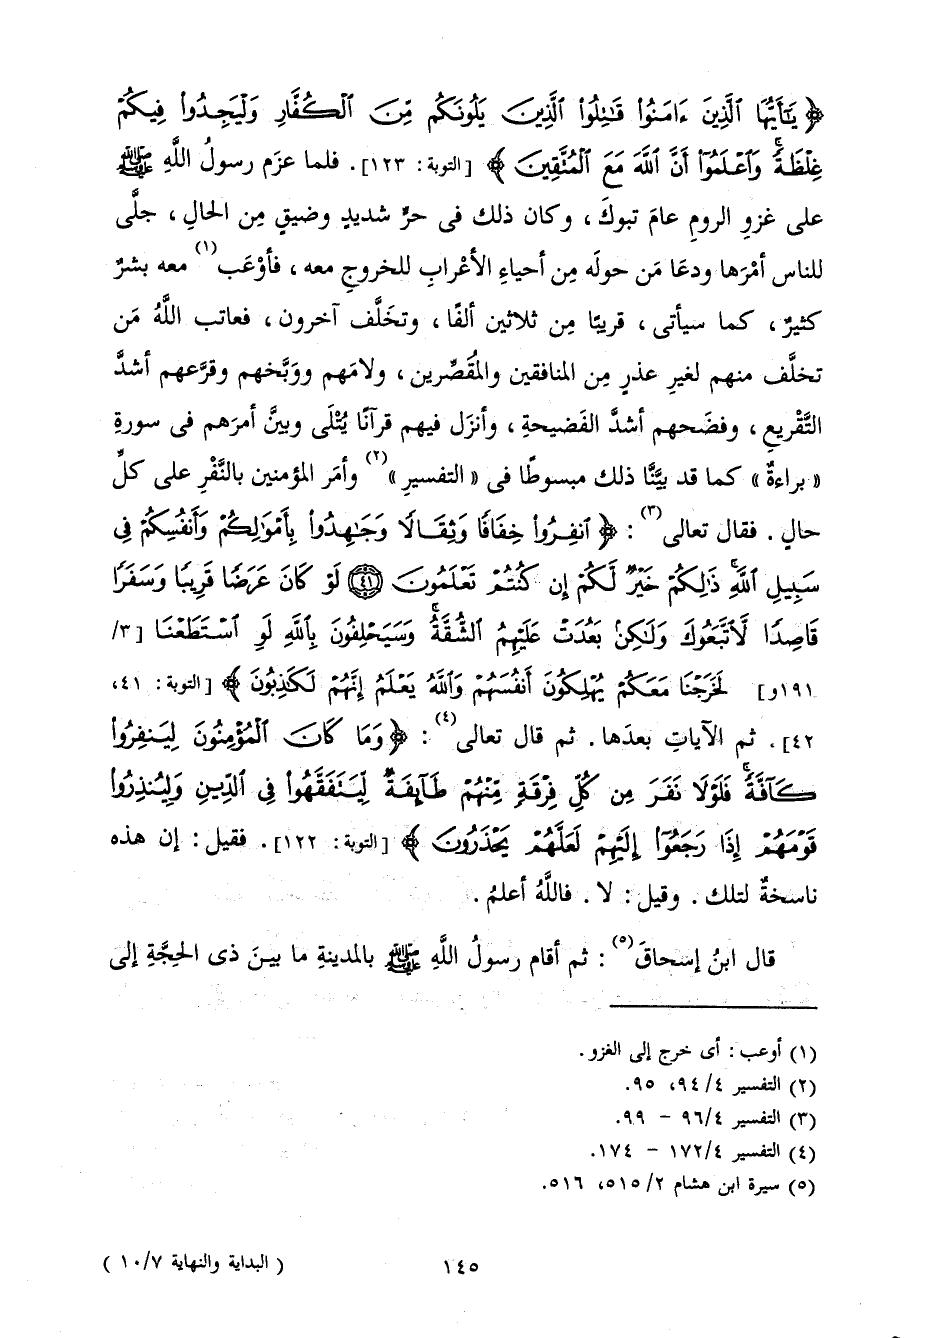 ﴿ يَٰٓأَيُّهَا ٱلَّذِينَ ءَامَنُوا۟ قَٰتِلُوا۟ ٱلَّذِينَ يَلُونَكُم مِّنَ ٱلْكُفَّارِ وَلْيَجِدُوا۟ فِيكُمْ
غِلْظَةً ۚ وَٱعْلَمُوٓا۟ أَنَّ ٱللَّهَ مَعَ ٱلْمُتَّقِينَ ﴾ [التوبة: ١٢٣]. فلما عزَم رسولُ اللَّهِ ﷺ
على غزوِ الرومِ عامَ تبوكَ، وكان ذلك فى حرٍّ شديدٍ وضيقٍ مِن الحالِ، جلَّى
للناس أمْرَها ودعَا مَن حولَه مِن أحياءِ الأعْرابِ للخروجِ معه، فأوْعَب(١) معه بشرٌ
كثيرٌ، كما سيأتى، قريبًا مِن ثلاثين ألفًا، وتخَلَّف آخرون، فعاتب اللَّهُ مَن
تخلَّف منهم لغيرِ عذرٍ مِن المنافقين والمُقَصِّرين، ولامَهم ووَبَّخهم وقرَّعهم أشدَّ
التَّقْريعِ، وفضَحهم أشدَّ الفَضيحةِ، وأنزَل فيهم قرآنًا يُتْلَى وبينَّ أمرَهم فى سورةِ
« براءةٌ » كما قد بيَّنَّا ذلك مبسوطًا فى « التفسيرِ »(٢) وأمَر المؤمنين بالنَّفْرِ على كلِّ
حالٍ. فقال تعالى(٣): ﴿ ٱنفِرُوا۟ خِفَافًا وَثِقَالًا وَجَٰهِدُوا۟ بِأَمْوَٰلِكُمْ وَأَنفُسِكُمْ فِى
سَبِيلِ ٱللَّهِ ۚ ذَٰلِكُمْ خَيْرٌ لَّكُمْ إِن كُنتُمْ تَعْلَمُونَ ﴿٤١﴾ لَوْ كَانَ عَرَضًا قَرِيبًا وَسَفَرًا
قَاصِدًا لَّٱتَّبَعُوكَ وَلَٰكِنۢ بَعُدَتْ عَلَيْهِمُ ٱلشُّقَّةُ ۚ وَسَيَحْلِفُونَ بِٱللَّهِ لَوِ ٱسْتَطَعْنَا [٣/
١٩١و] لَخَرَجْنَا مَعَكُمْ يُهْلِكُونَ أَنفُسَهُمْ وَٱللَّهُ يَعْلَمُ إِنَّهُمْ لَكَٰذِبُونَ ﴾ [التوبة: ٤١،
٤٢]. ثم الآياتِ بعدَها. ثم قال تعالى(٤): ﴿ وَمَا كَانَ ٱلْمُؤْمِنُونَ لِيَنفِرُوا۟
كَآفَّةً ۚ فَلَوْلَا نَفَرَ مِن كُلِّ فِرْقَةٍ مِّنْهُمْ طَآئِفَةٌ لِّيَتَفَقَّهُوا۟ فِى ٱلدِّينِ وَلِيُنذِرُوا۟
قَوْمَهُمْ إِذَا رَجَعُوٓا۟ إِلَيْهِمْ لَعَلَّهُمْ يَحْذَرُونَ ﴾ [التوبة: ١٢٢]. فقيل: إن هذه
ناسخةٌ لتلك. وقيل: لا. فاللَّهُ أعلمُ.
قال ابنُ إسحاقَ(٥): ثم أقام رسولُ اللَّهِ ﷺ بالمدينةِ ما بينَ ذى الحِجَّةِ إلى
(١) أوعب: أى خرج إلى الغزو.
(٢) التفسير ٤/ ٩٤، ٩٥.
(٣) التفسير ٤/ ٩٦ - ٩٩.
(٤) التفسير ٤/ ١٧٢ - ١٧٤.
(٥) سيرة ابن هشام ٢/ ٥١٥، ٥١٦.
١٤٥
( البداية والنهاية ١٠/٧ )